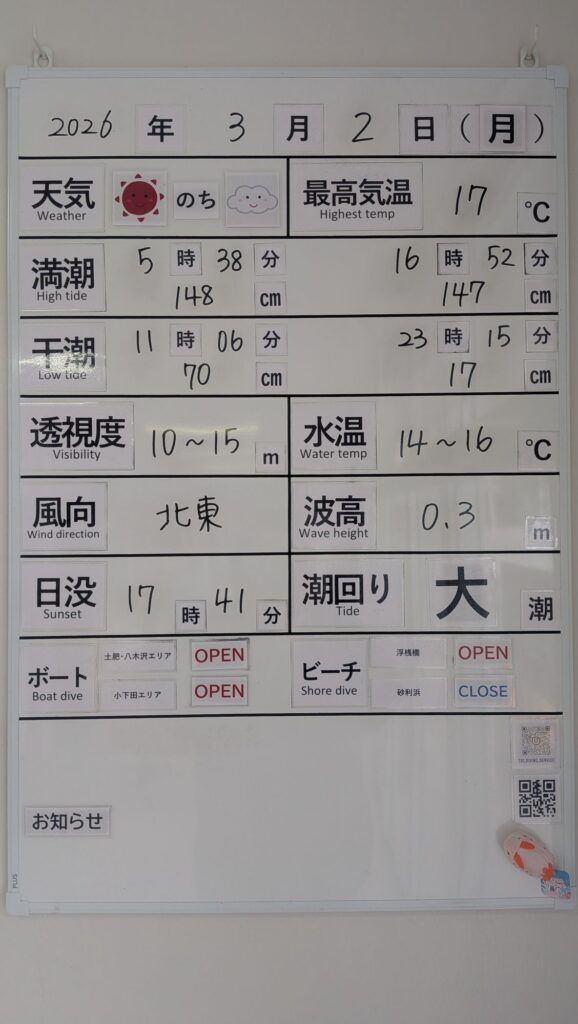 2026 年 3 月 2 日 (月)
天気 のち 最高気温 17 ℃
Weather Highest temp
満潮 5 時 38 分 16 時 52 分
High tide 148 cm 147 cm
干潮 11 時 06 分 23 時 15 分
Low tide 70 cm 17 cm
透視度 10〜15 m 水温 14〜16 ℃
Visibility Water temp
風向 北東 波高 0.3 m
Wind direction Wave height
日没 17 時 41 分 潮回り 大 潮
Sunset Tide
ボート 土肥・八木沢エリア OPEN ビーチ 浮桟橋 OPEN
Boat dive 小下田エリア OPEN Shore dive 砂利浜 CLOSE
お知らせ
PLUS